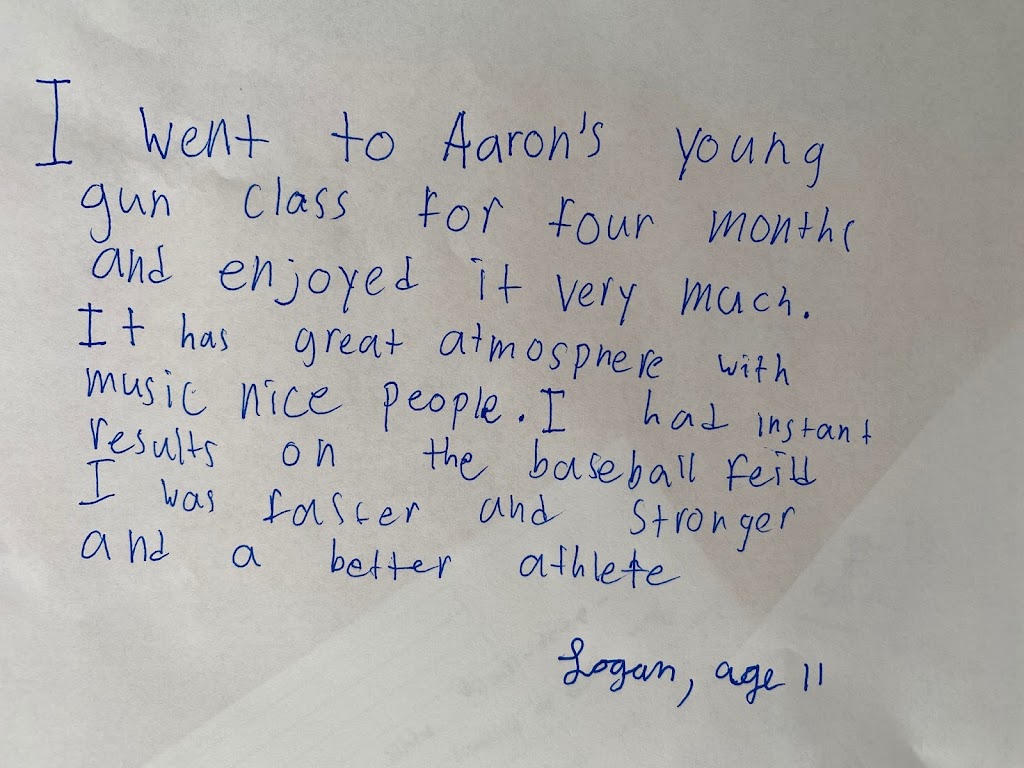 I went to Aaron's young
gun class for four months
and enjoyed it very much.
It has great atmosphere with
music nice people. I had instant
results on the baseball feild
I was faster and stronger
and a better athlete
Logan, age 11